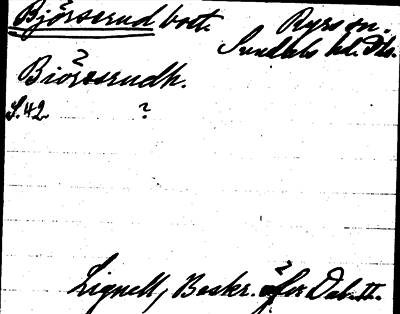 Björserud bort. Ryrs sn.
Sundals hd. Dls.
Biörserudh.
S. 42 ?
Lignell, Beskr. öfver Dal. II.